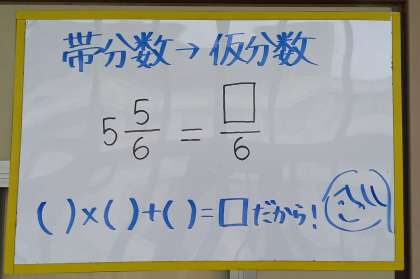 帯分数→仮分数
5 5/6 = □/6
( )×( )+( )=□だから!